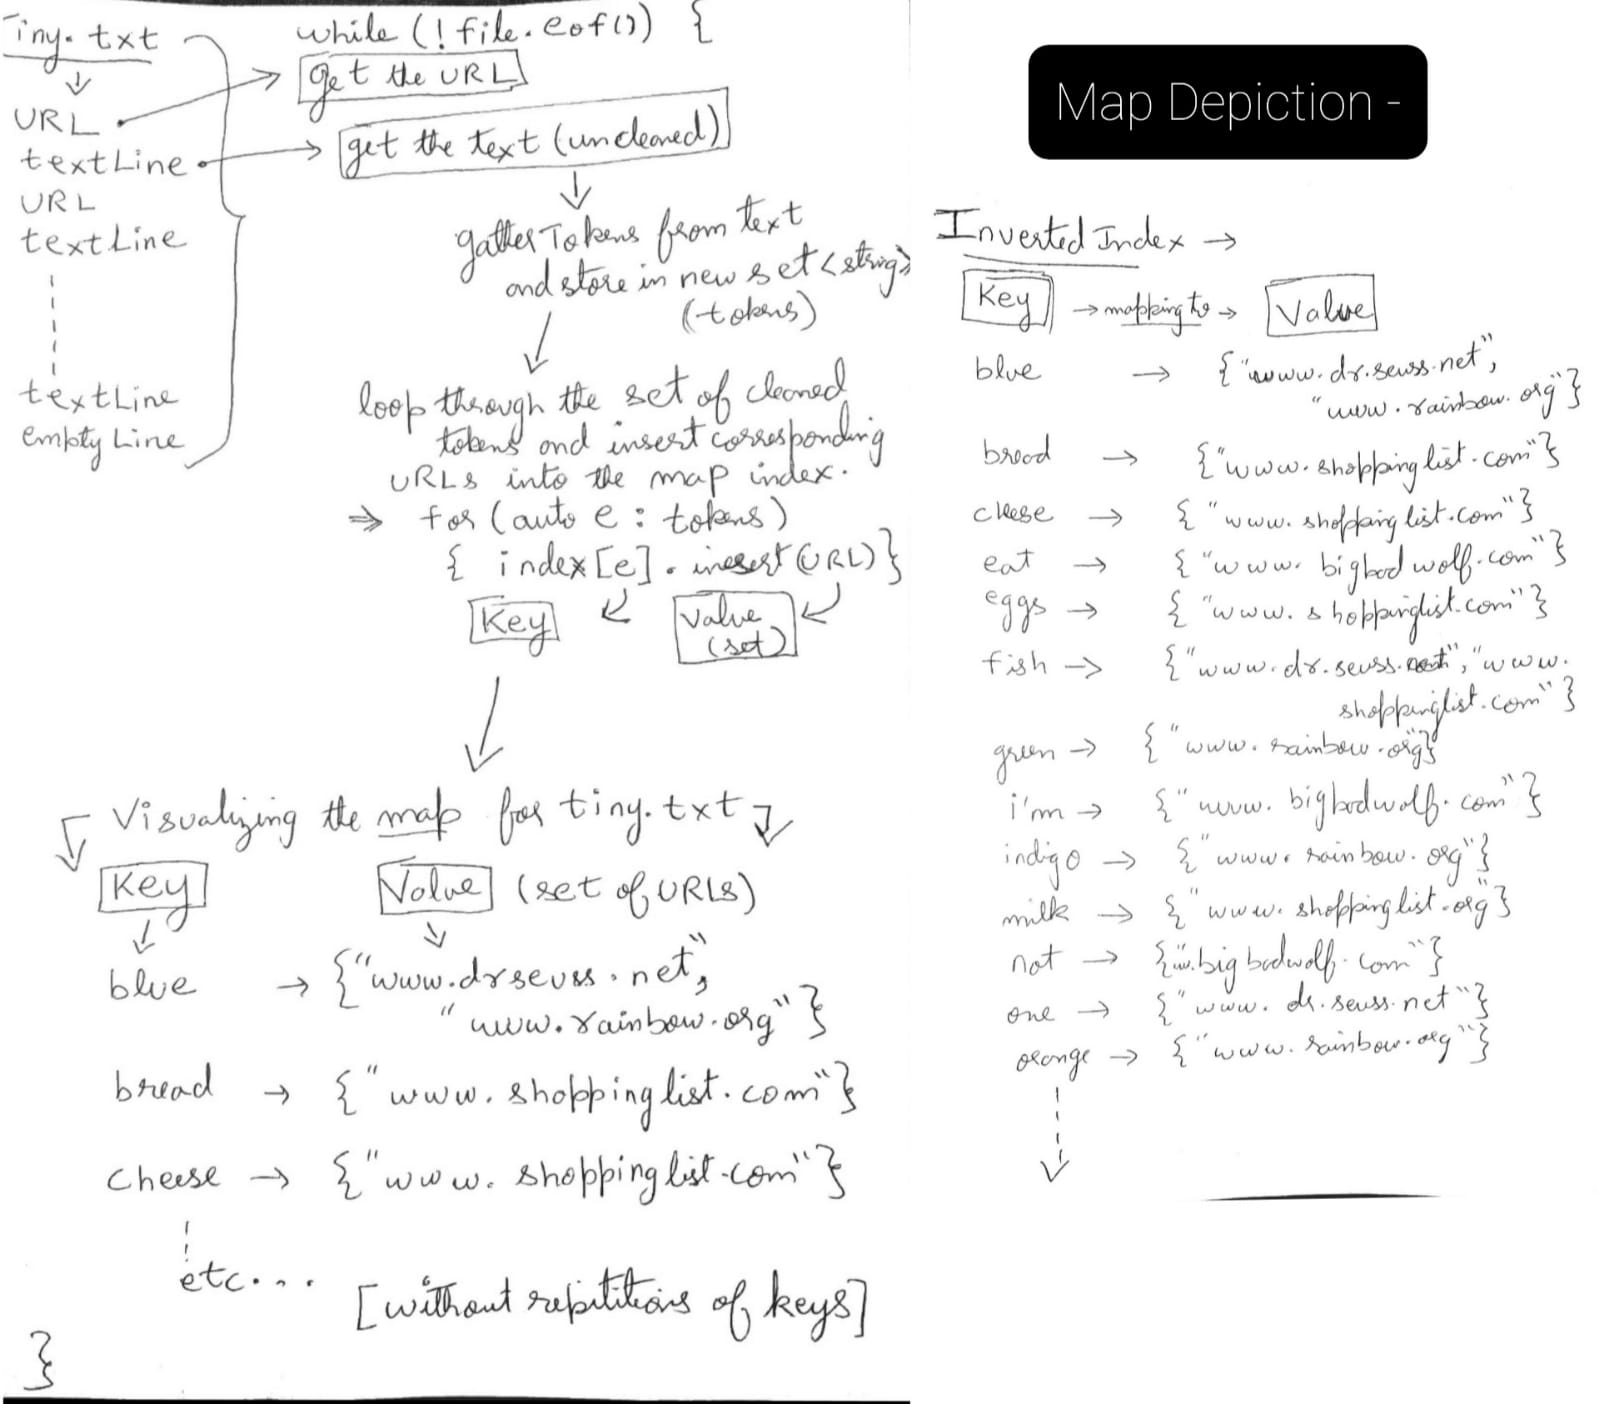 Tiny.txt
URL
textLine
URL
textLine
textLine
empty Line
while (! file.eof()) {
get the URL
get the text (uncleaned)
gather Tokens from text
and store in new set<string>
(tokens)
loop through the set of cleaned
tokens and insert corresponding
URLs into the map index.
⇒ for (auto e : tokens)
{ index[e] . insert (URL) }
Key
Value
(set)
Visualizing the map for tiny.txt
Key Value (set of URLs)
blue → {"www.drseuss.net,
"www.rainbow.org"}
bread → {"www.shoppinglist.com"}
cheese → {"www.shoppinglist.com"}
etc...
[without repititions of keys]
}
Map Depiction -
Inverted Index →
Key → mapping to → Value
blue → {"www.dr.seuss.net",
"www.rainbow.org"}
bread → {"www.shoppinglist.com"}
cheese → {"www.shoppinglist.com"}
eat → {"www.bigbadwolf.com"}
eggs → {"www.shoppinglist.com"}
fish → {"www.dr.seuss.net", "www.
shoppinglist.com"}
green → {"www.rainbow.org"}
i'm → {"www.bigbadwolf.com"}
indigo → {"www.rainbow.org"}
milk → {"www.shoppinglist.org"}
not → {"w.bigbadwolf.com"}
one → {"www.dr.seuss.net"}
orange → {"www.rainbow.org"}